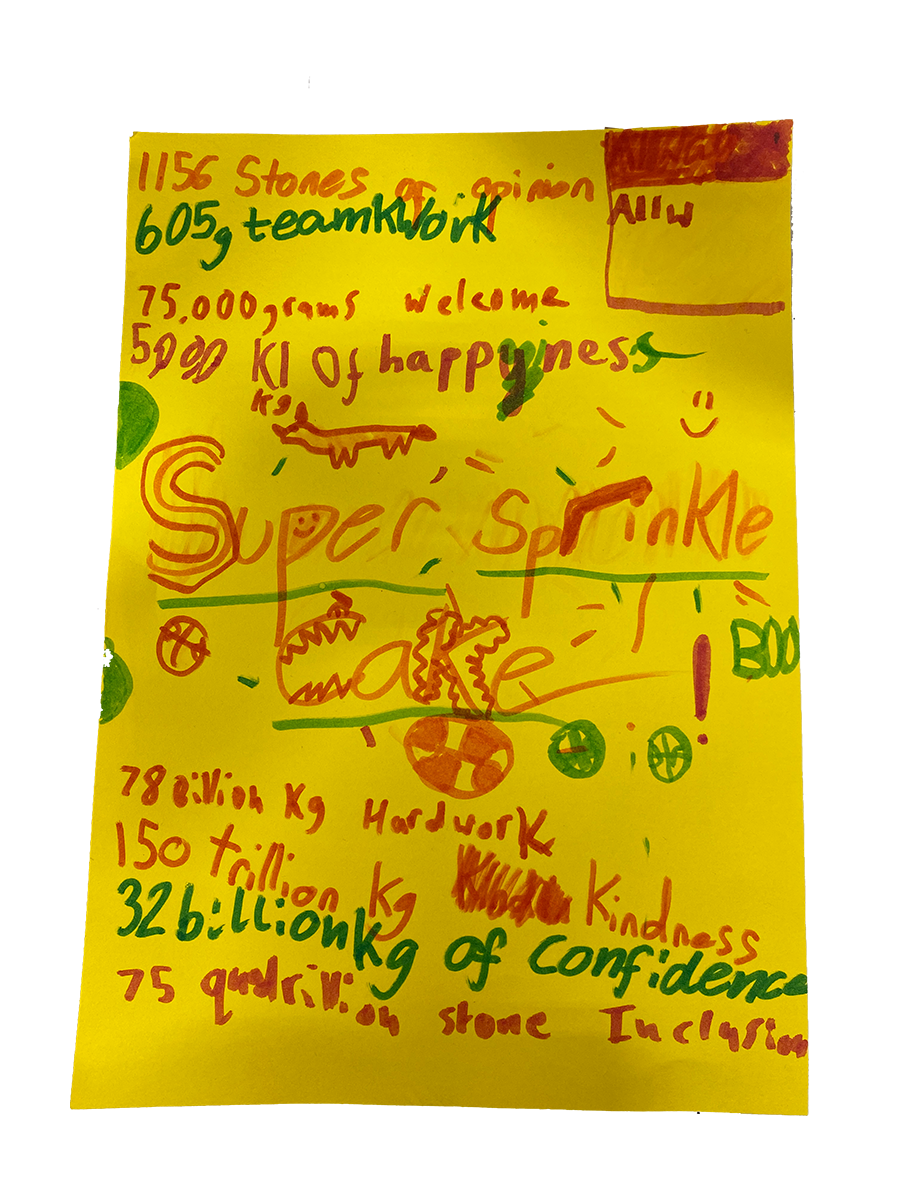 1156 Stones of opinion
605g teamkwork
Allw
75,000grams welcome
5000 Kl Of happyness
Kg
Super sprinkle
Cake!
BOO
78 Billion Kg Hardwork
150 trillion Kg Kindness
32billionkg of confidence
75 quadrillion stone Inclusion